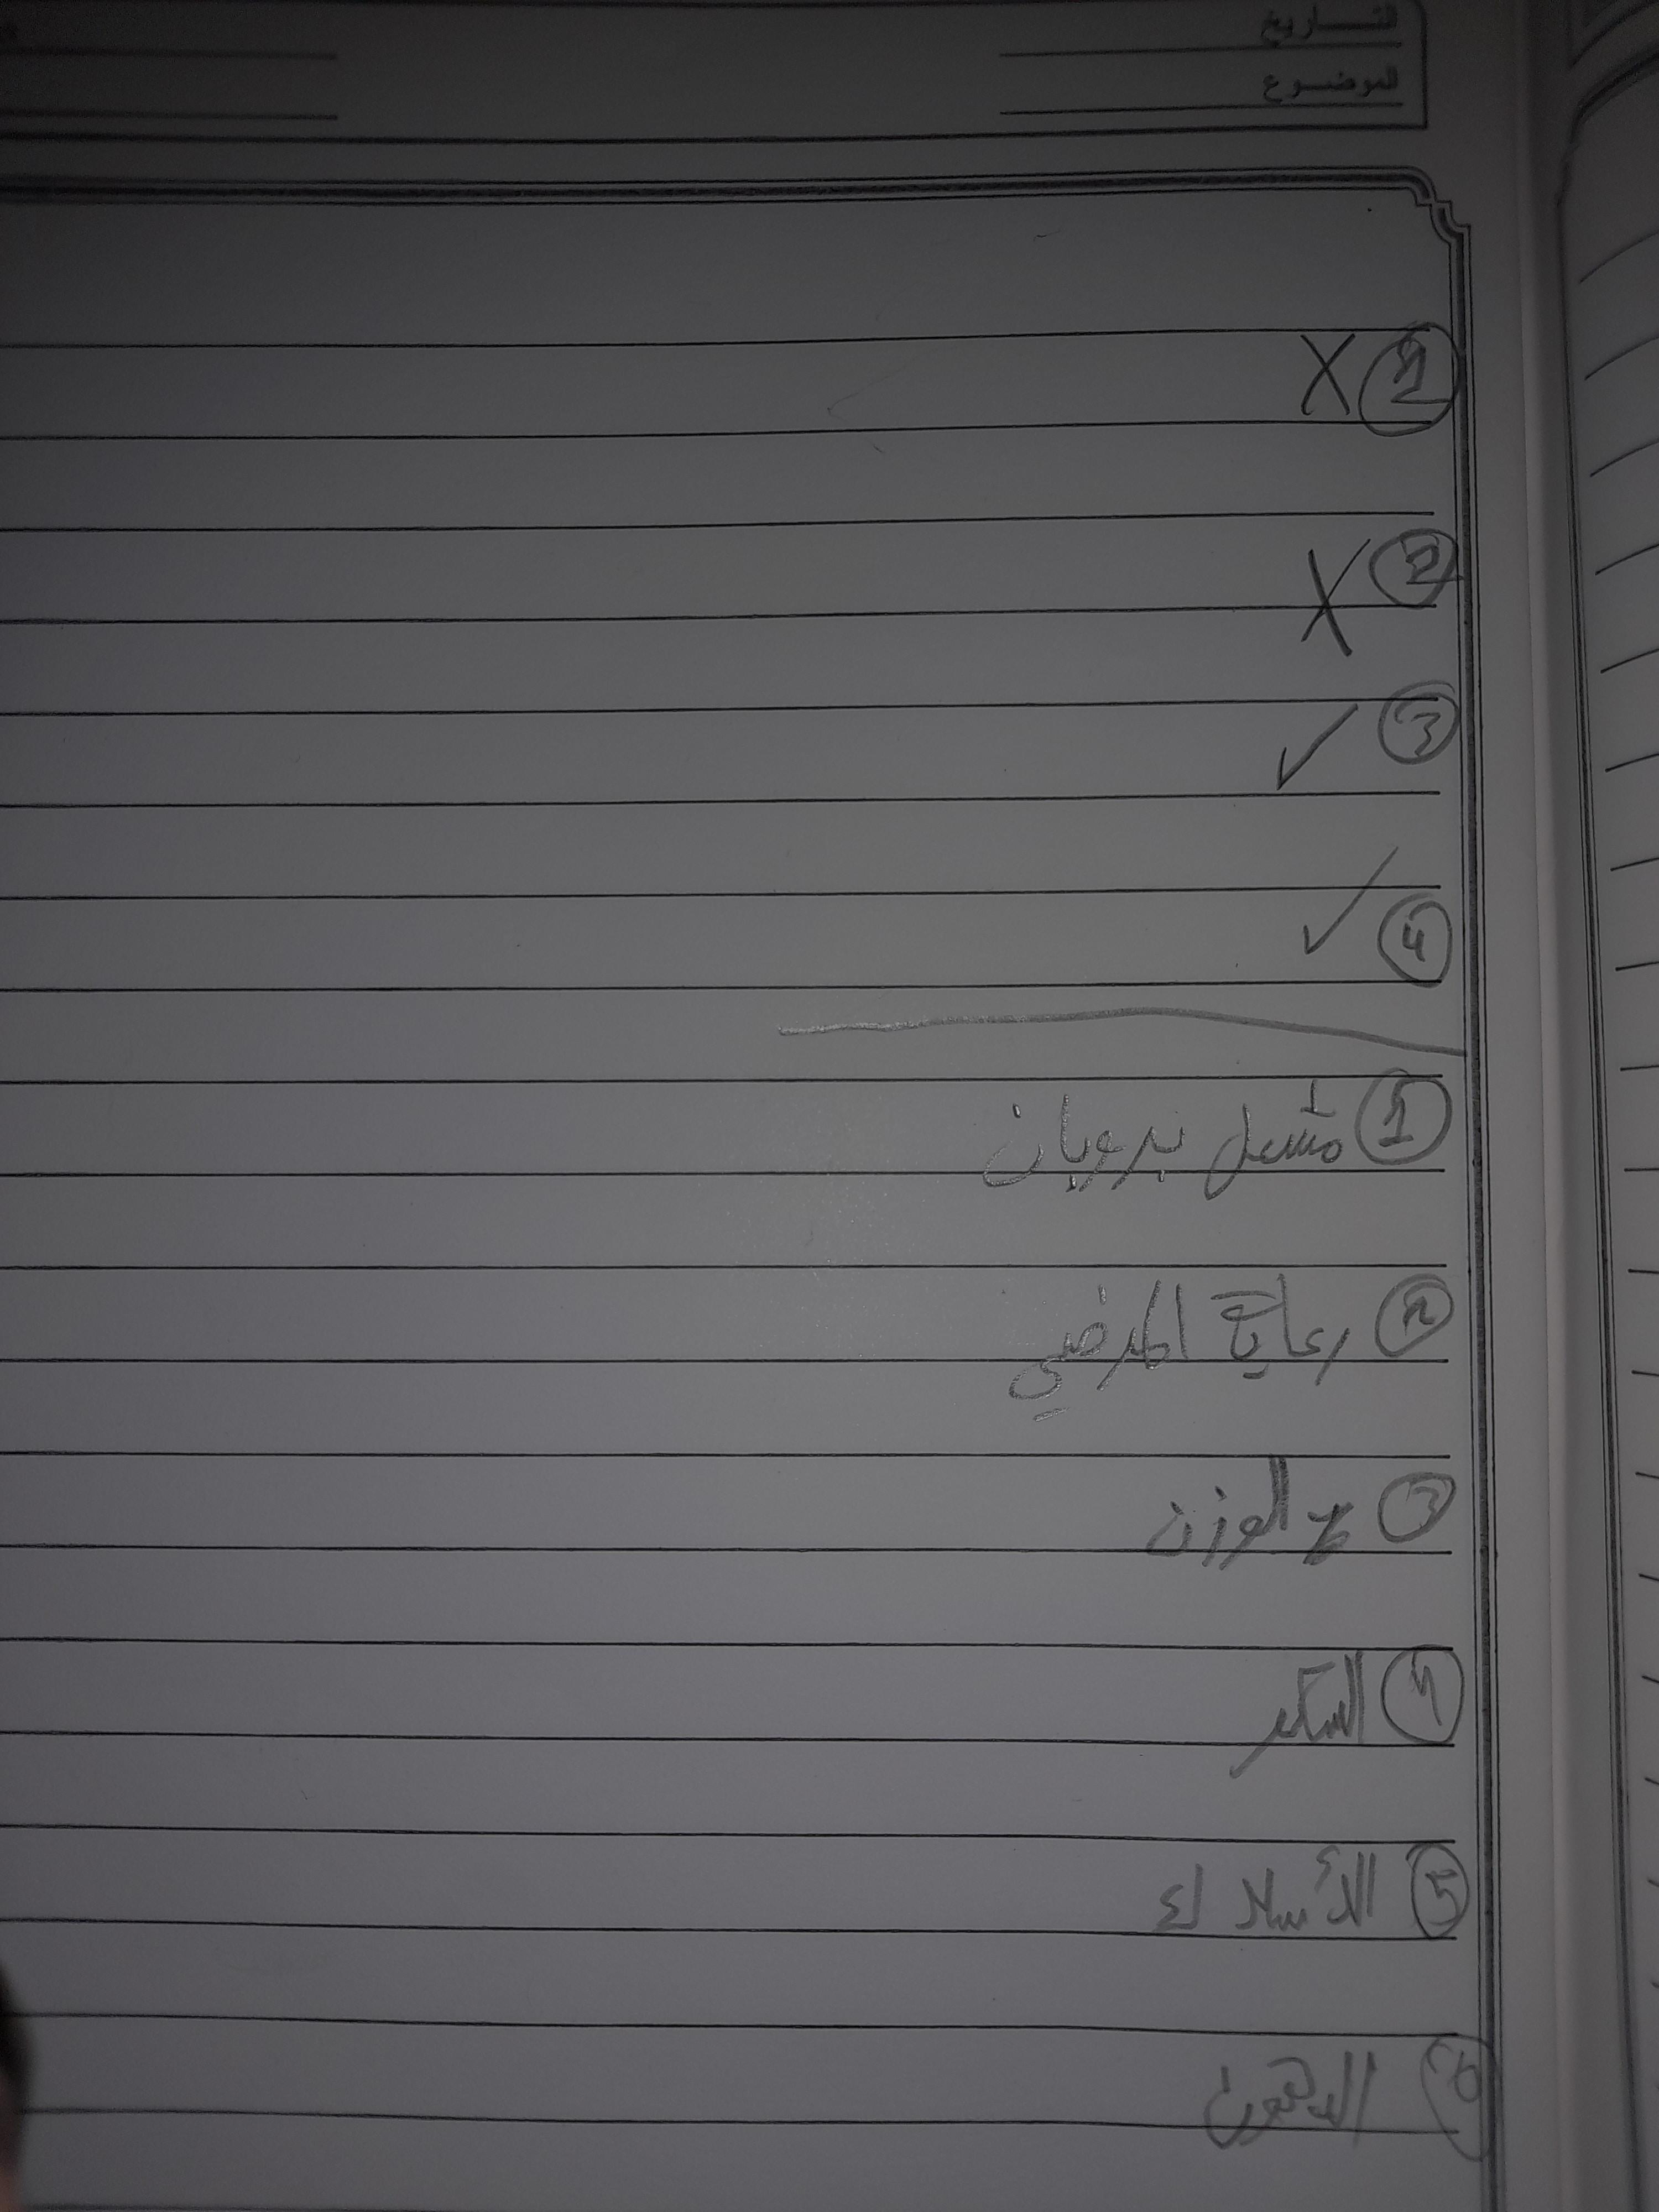 التــاريخ
الموضــوع
1 X
2 X
3 ✓
4 ✓
1 مشعل بدوبان
2 رعاية المرضي
3 الوزن
4 السكر
5 الأسلاك
6